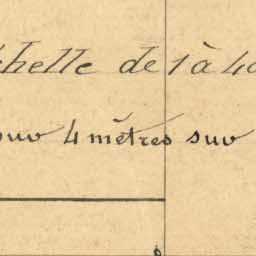 chelle de 1 à 40
sur 4 mètres sur